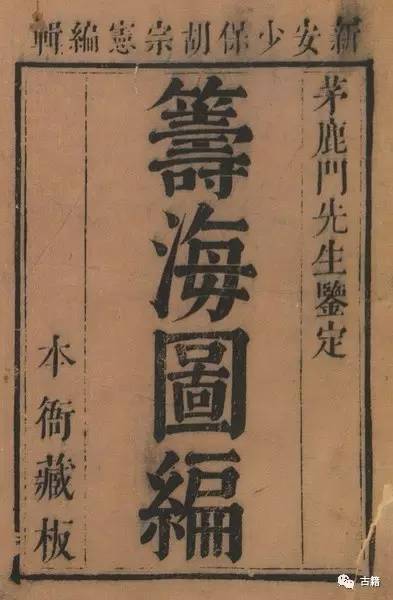 新安少保胡宗憲編輯
茅鹿門先生鑒定
籌海圖編
本衙藏板
古籍